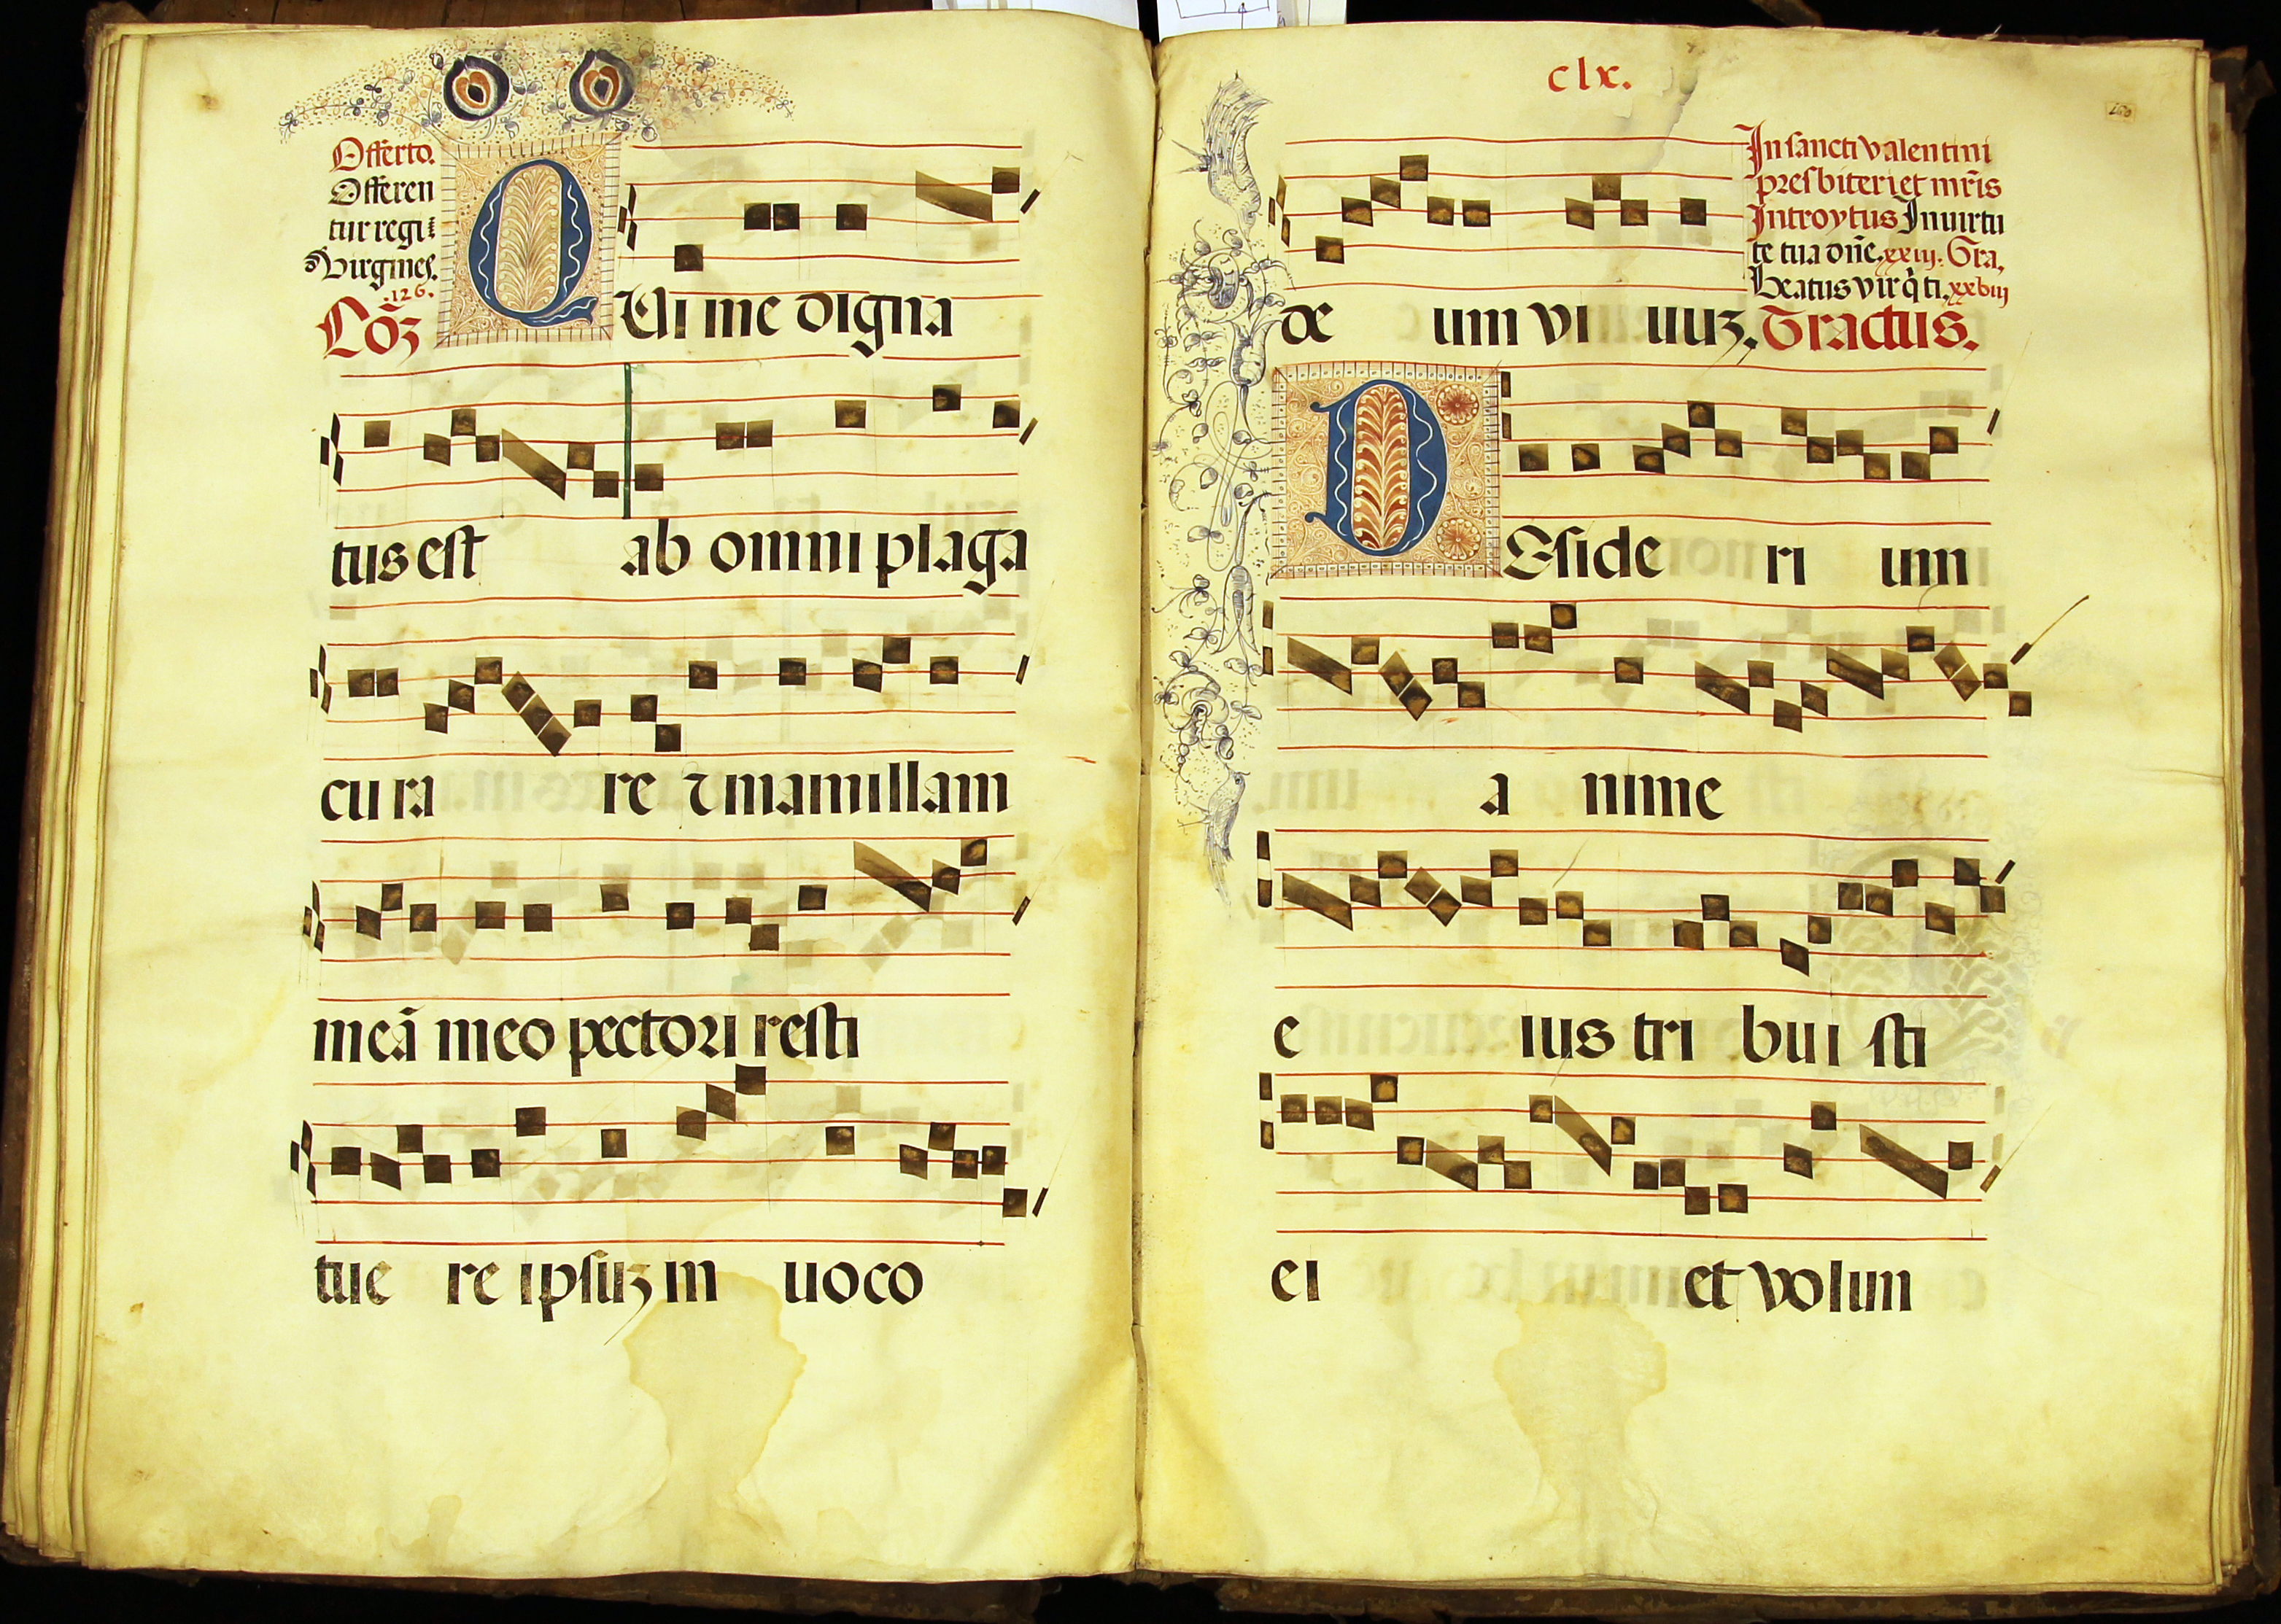 Offerto.
Offeren
tur regi
Virgines.
.126.
Cōȝ
QUi me digna
tus est ab omni plaga
cu ra re ꝛ mamillam
meā meo pectori resti
tue re ipsuȝ in uoco
clx.
In sancti valentini
presbiteri et mr̄is
Introytus In uirtu
te tua dn̄e. xxiij. Gra.
Beatus vir q̇ ti. xxviij
de um vi uuȝ. Tractus.
DEside ri um
a nime
e ius tri bui sti
ei et volun